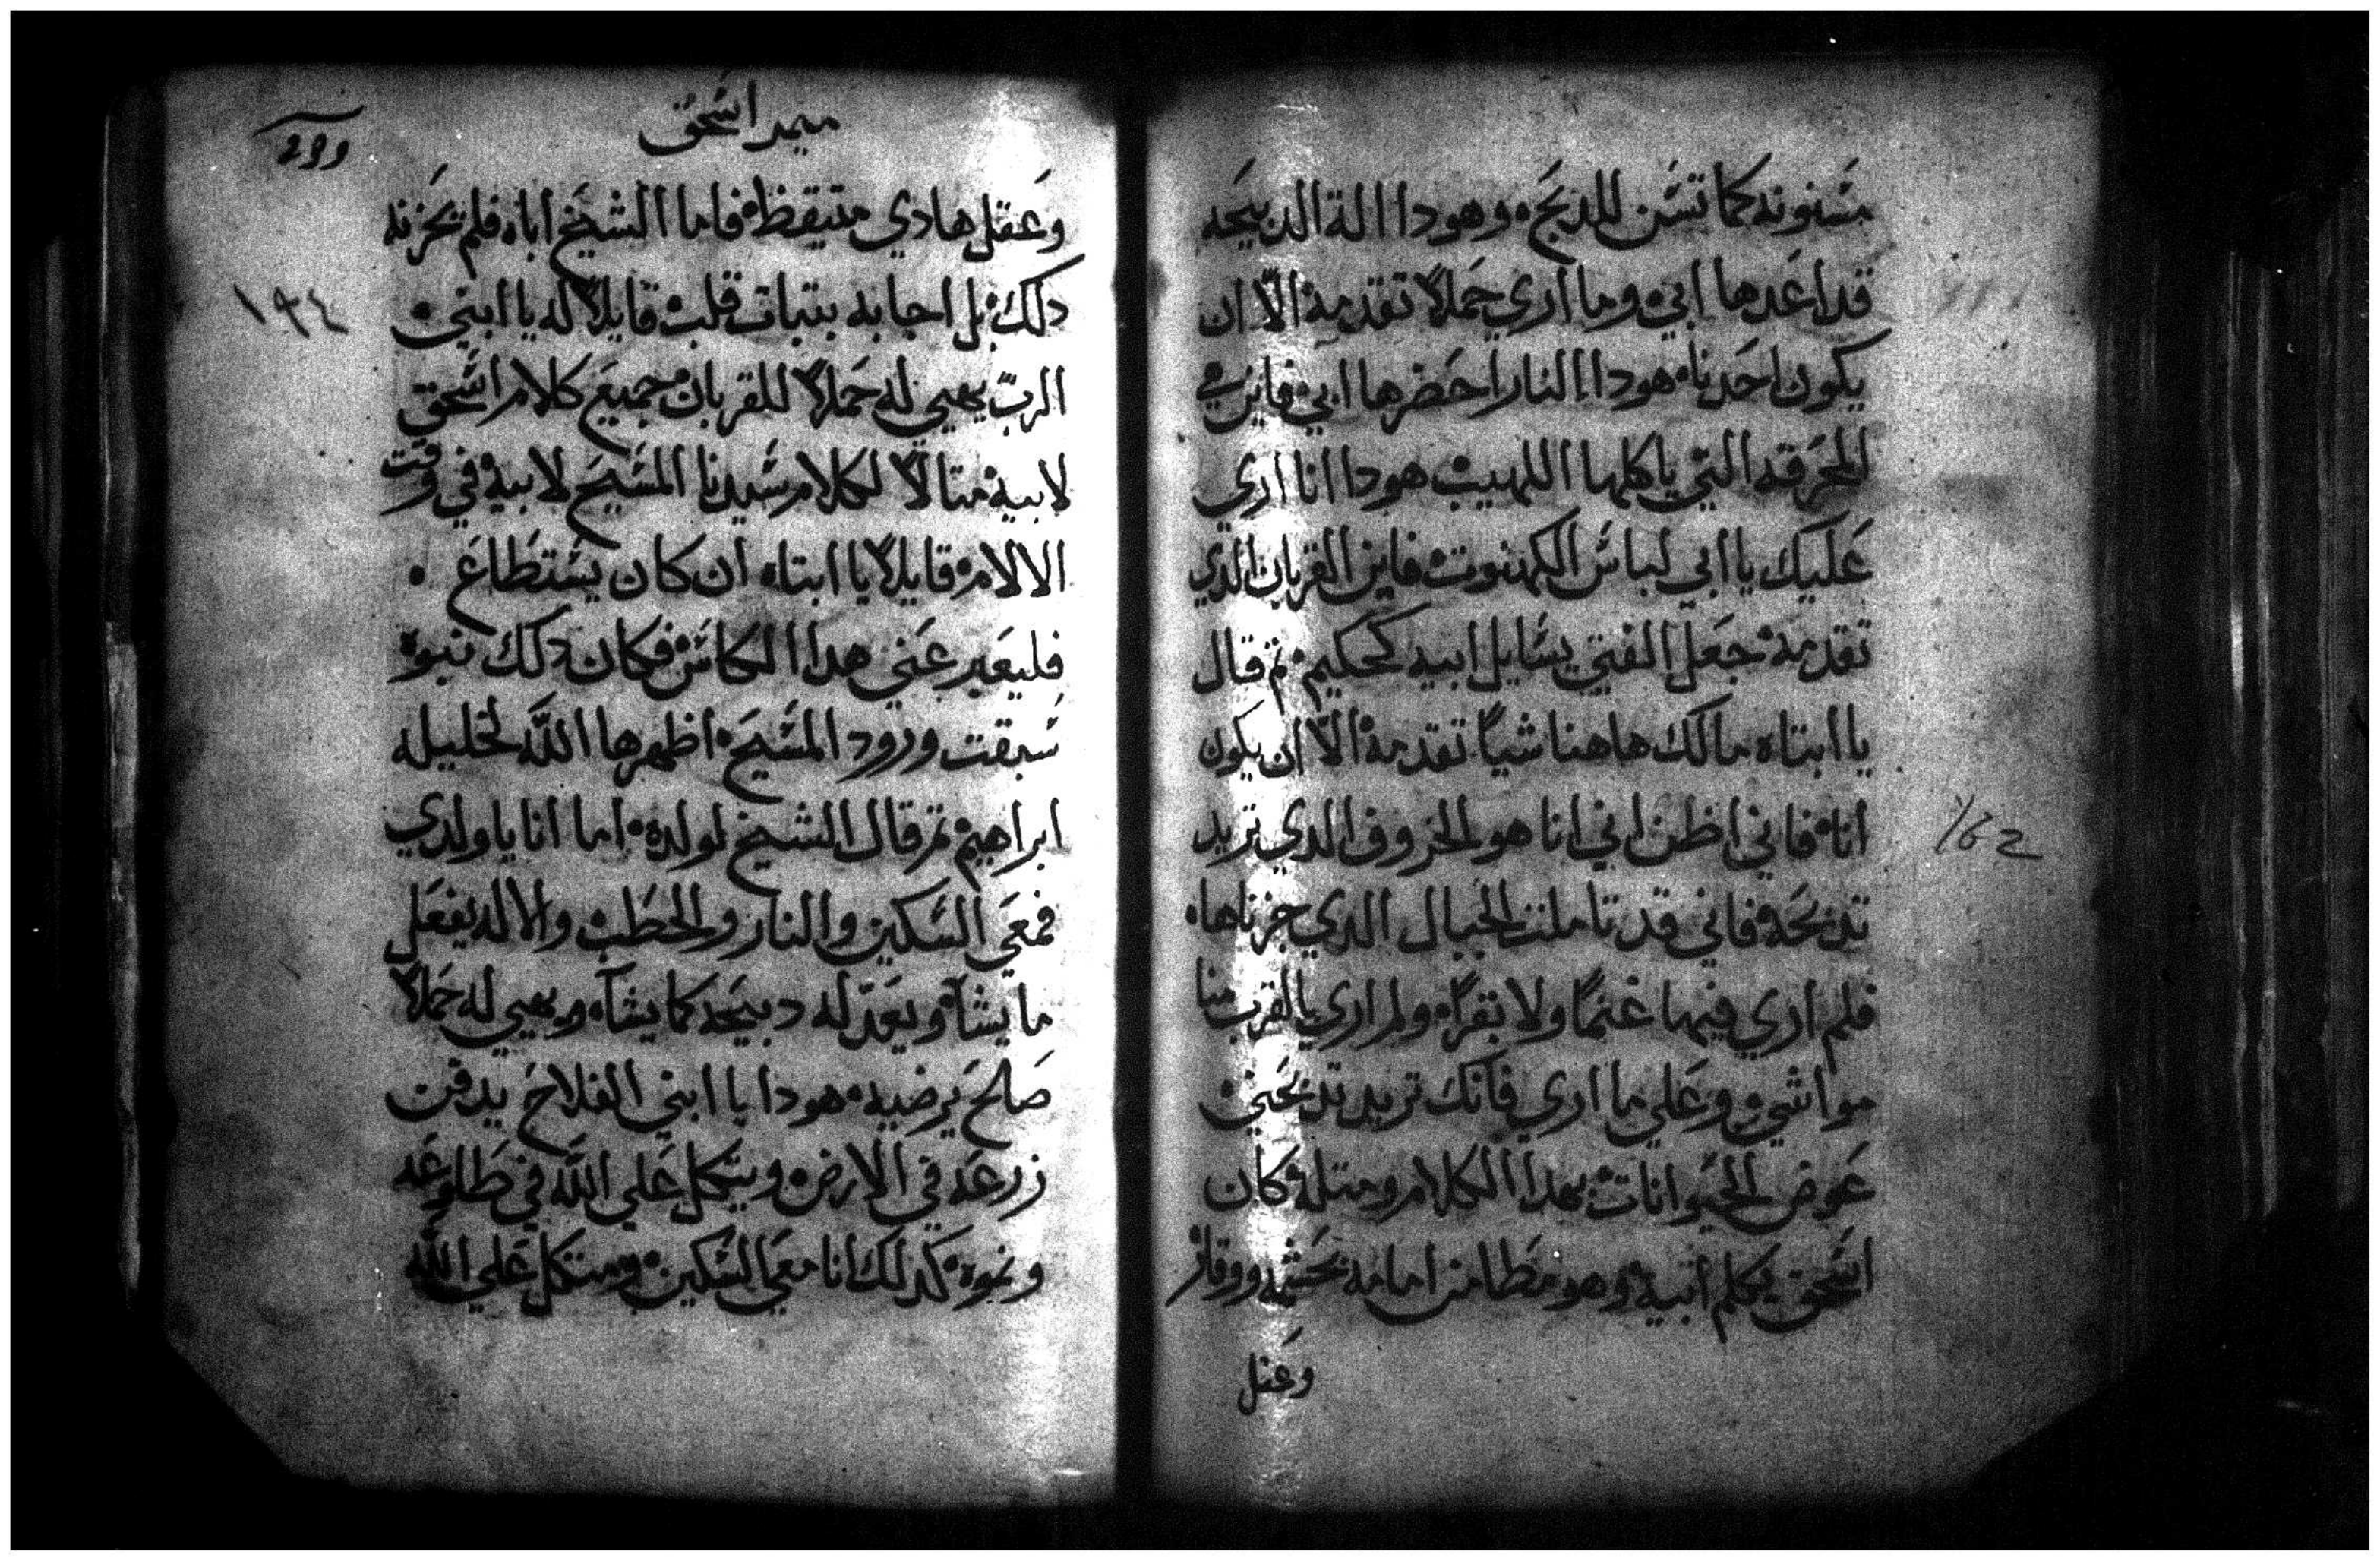 مسنونه كما تسن للدبح، وهودا الة الدبيحه
قد اعدها ابي، وما اري حملاً تقدمة الّا ان
يكون احدنا، هودا النار احضرها ابي، فاين هي
المحرقه التي ياكلها اللهيب، هودا انا اري
عليك يا ابي لباس الكهنوت، فاين القربان الدي
تقدمة، جعل الفتي يسايل ابيه كحكيم، ثم قال
يا ابتاه مالك هاهنا شياً تقدمة، الّا ان يكون
انا، فاني اظن اني انا هو الخروف الدي تريد
تدبحه، فاني قد تاملت الجبال الدي جزناها،
فلم اري فيها غنماً ولا بقراً، ولم اري بالقرب منا
مواشي، وعلي ما اري فانك تريد تدبحني،
عوض الحيوانات، بهدا الكلام ومتله، كان
اسحق يكلم ابيه، وهو مطامن امامه بحشمه ووقار
وعقل
ميمر اسحق
١٩٤
162
وعقل هادي متيقظ، فاما الشيخ اباه، فلم يحزنه
دلك، بل اجابه بتبات قلب، قايلاً له يا ابني،
الرب يهيي له حملاً للقربان، جميع كلام اسحق
لابيه، متالاً لكلام سيدنا المسيح لابيه، في وقت
الالام، قايلاً يا ابتاه ان كان يستطاع،
فليعبر عني هدا الكاس، فكان دلك نبوة
سبقت ورود المسيح، اظهرها اللّه لخليله
ابراهيم، تم قال الشيخ لولده، اما انا يا ولدي
فمعي السكين والنار والحطب، والاله يفعل
ما يشآ، ويعدّ له دبيحه كما يشآ، ويهيي له حملاً
صالح يرضيه، هودا يا ابني الفلاح يدفن
زرعه في الارض، ويتكل علي اللّه في طلوعه
ونموه، كدلك انا معي السكين، ومتكل علي اللّه